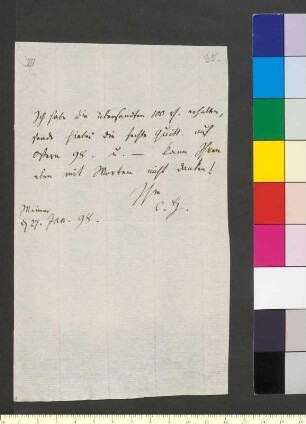 35.
Ich habe die übersandten 100 rh. erhalten,
sende hierbei die sechste Quitt. auf
Ostern 98. u. — kann Ihnen
eben mit Worten nicht danken!
Ihr
Weimar
d 27. Jan. 98.